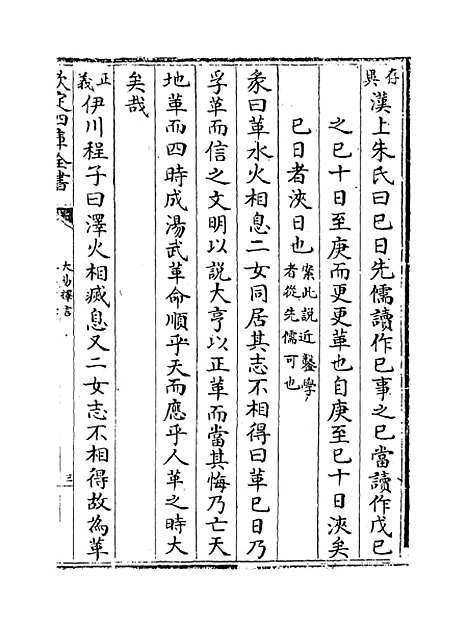 存異
漢上朱氏曰巳日先儒讀作巳事之巳當讀作戊己
之己十日至庚而更更革也自庚至己十日浹矣
己日者浹日也案此說近鑿學者從先儒可也
彖曰革水火相息二女同居其志不相得曰革巳日乃
孚革而信之文明以說大亨以正革而當其悔乃亡天
地革而四時成湯武革命順乎天而應乎人革之時大
矣哉
正義
伊川程子曰澤火相滅息又二女志不相得故為革
欽定四庫全書
大易擇言
三